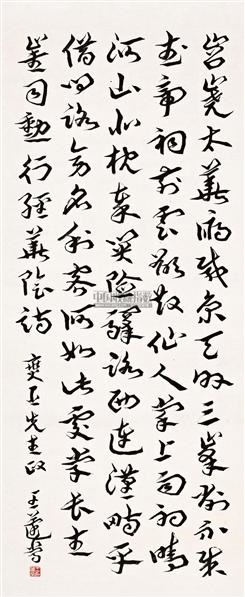 岧嶤太華俯咸京天外三峯削不成
武帝祠前雲欲散仙人掌上雨初晴
河山北枕秦關險驛路西連漢畤平
借問路旁名利客何如此處學長生
崔司勳行經華陰詩 燮五先生政 王蘧常